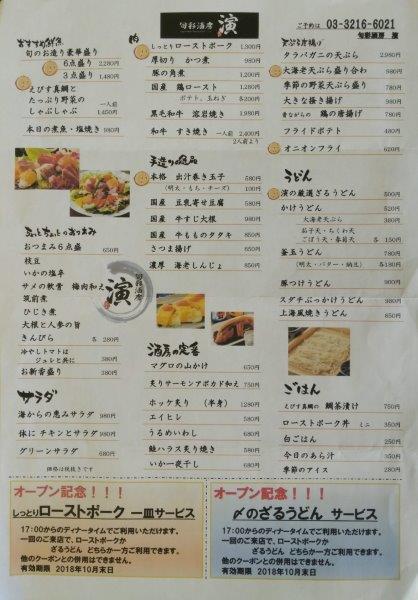 旬彩酒房 演
ご予約は 03-3216-6021
旬彩酒房 演
おすすめ鮮魚
旬のお造り豪華盛り
6点盛り 2,280円
3点盛り 1,480円
えびす真鯛と
たっぷり野菜の
しゃぶしゃぶ
一人前
1,450円
本日の煮魚・塩焼き 980円
ちょこちょこっとおつまみ
おつまみ6点盛 650円
枝豆
いかの塩辛
サメの軟骨 梅肉和え
筑前煮
ひじき煮
大根と人参の旨
きんぴら 各 280円
冷やしトマトは
ジュレと共に 380円
お新香盛り 380円
サラダ
海からの恵みサラダ 980円
体に チキンとサラダ 980円
グリーンサラダ 680円
価格は税抜きです
肉
しっとりローストポーク 1,300円
厚切り かつ煮 980円
豚の角煮 980円
国産 鶏ロースト 1,280円
ポテト、玉ねぎ 各+200円
黒毛和牛 溶岩焼き 1,980円
和牛 すき焼き 一人前 2,400円
2人前より
手造り逸品
本格 出汁巻き玉子 580円
(明太・もち・チーズ) 100円
国産 豆乳寄せ豆腐 580円
国産 牛すじ大根 580円
国産 牛もものタタキ 850円
さつま揚げ 650円
濃厚 海老しんじょ 850円
旬彩酒房 演
酒房の定番
マグロの山かけ 650円
炙りサーモンアボカド和え 750円
ホッケ炙り (半身) 1280円
エイヒレ 580円
うるめいわし 680円
鮭ハラス炙り焼き 580円
いか一夜干し 680円
天ぷら唐揚げ
タラバガニの天ぷら 2,980円
大海老天ぷら盛り合わ 1,980円
季節の野菜天ぷら盛り 780円
大きな掻き揚げ 980円
昔ながらの 鶏の唐揚げ 780円
フライドポテト 480円
オニオンフライ 620円
うどん
演の厳選ざるうどん 500円
かけうどん 520円
大海老天ぷら 380円
茄子天・ちくわ天
ごぼう天・春菊天 各 150円
釜玉うどん 780円
(明太・バター・納豆) 各180円
豚つけうどん 950円
スダチぶっかけうどん 980円
上海風焼きうどん 850円
ごはん
えびす真鯛の 鯛茶漬け 750円
ローストポーク丼 ミニ 350円
白ごはん 250円
今日のあら汁 350円
季節のアイス 280円
オープン記念!!!
しっとりローストポーク 一皿サービス
17:00からのディナータイムでご利用いただけます。
一回のご来店で、ローストポークか
ざるうどん どちらか一方ご利用できます。
他のクーポンとの併用はできません。
有効期限 2018年10月末日
オープン記念!!!
〆のざるうどん サービス
17:00からのディナータイムでご利用いただけます。
一回のご来店で、ローストポークか
ざるうどん どちらか一方ご利用できます。
他のクーポンとの併用はできません。
有効期限 2018年10月末日